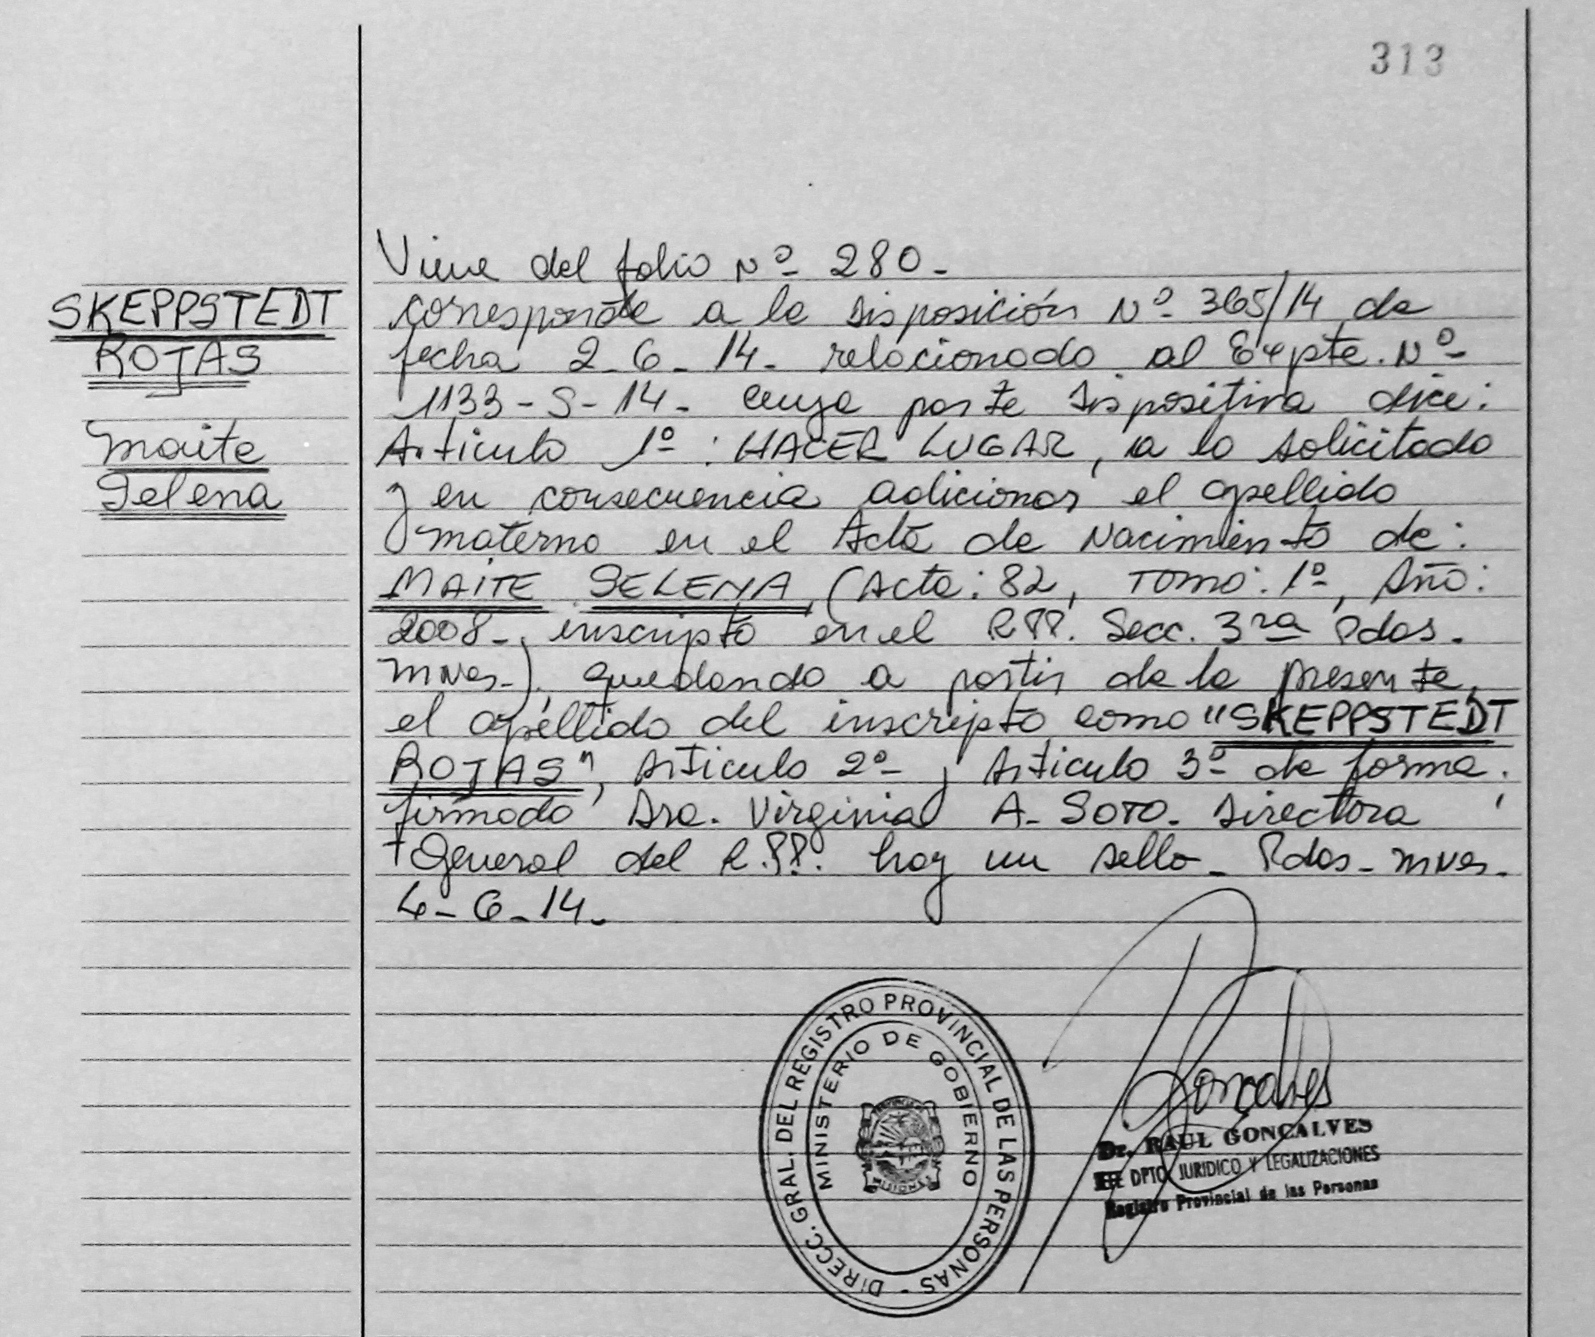 313
SKEPPSTEDT
ROJAS
Maite
Selena
Viene del folio Nº 280-
corresponde a la disposición Nº 365/14 de
fecha 2-6-14- relacionado al Expte. Nº
1133-S-14- cuya parte dispositiva dice:
Articulo 1º: HACER LUGAR, a lo solicitado
y en consecuencia adicionar el apellido
materno en el Acta de Nacimiento de:
MAITE SELENA (Acta: 82, Tomo: 1º, Año:
2008-, inscripto en el RPP. Secc. 3ra Pdas.
Mnes.), quedando a partir de la presente
el apellido del inscripto como "SKEPPSTEDT
ROJAS", Articulo 2º y Articulo 3º de forma.
firmado Dra. Virginia A. Soto. Directora
General del R.PP. hay un sello- Pdas- Mnes-
4-6-14-
DIRECC. GRAL. DEL REGISTRO PROVINCIAL DE LAS PERSONAS -
MINISTERIO DE GOBIERNO
PROVINCIA
MISIONES
Goncalves
Dr. RAUL GONCALVES
JEFE DPTO. JURIDICO Y LEGALIZACIONES
Registro Provincial de las Personas